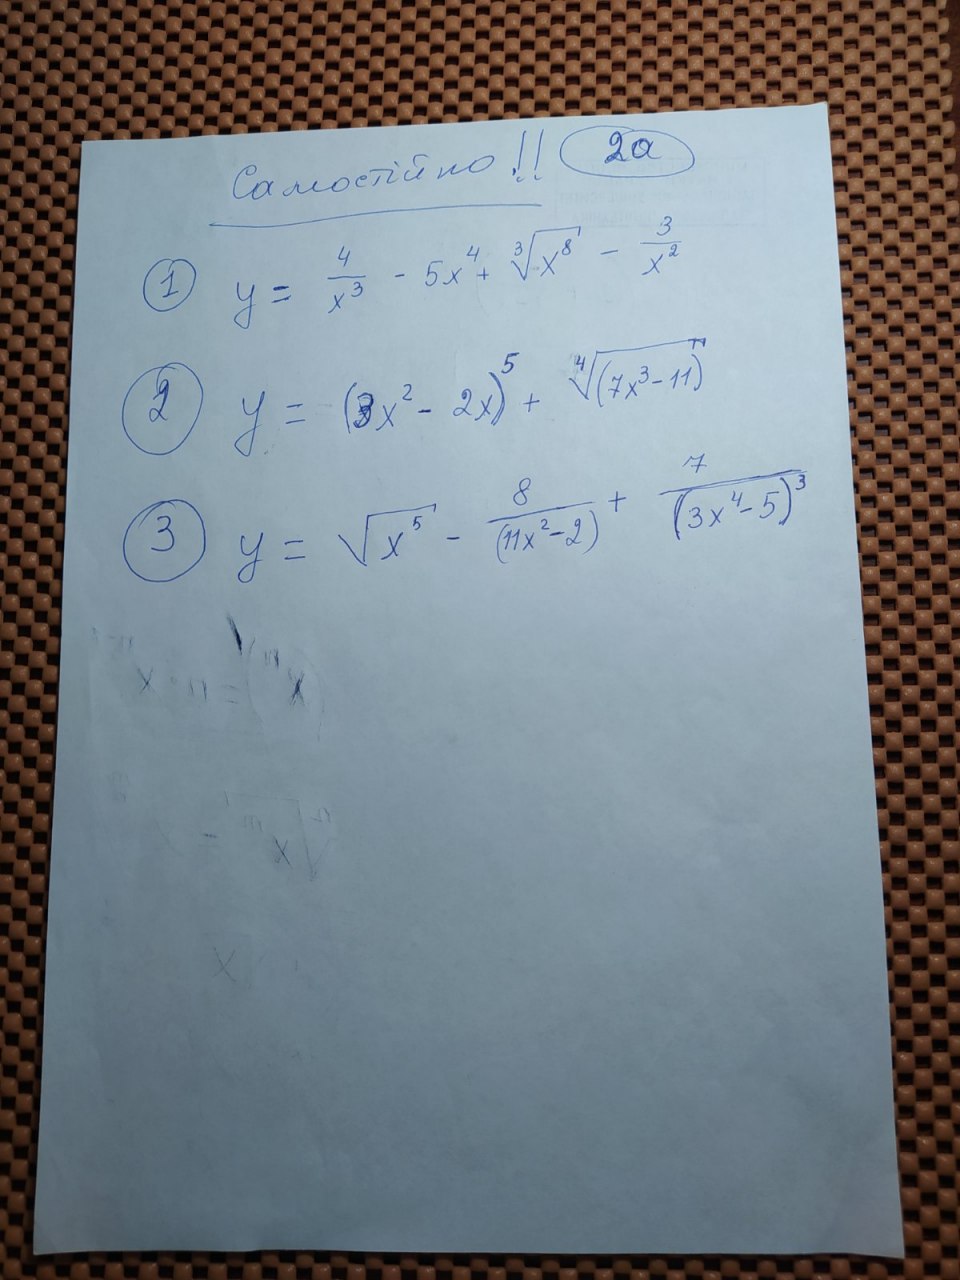 Самостійно!! 2а
① y = 4/x³ - 5x⁴ + ∛x⁸ - 3/x²
② y = (3x² - 2x)⁵ + ∜(7x³-11)
③ y = √x⁵ - 8/(11x²-2) + 7/(3x⁴-5)³